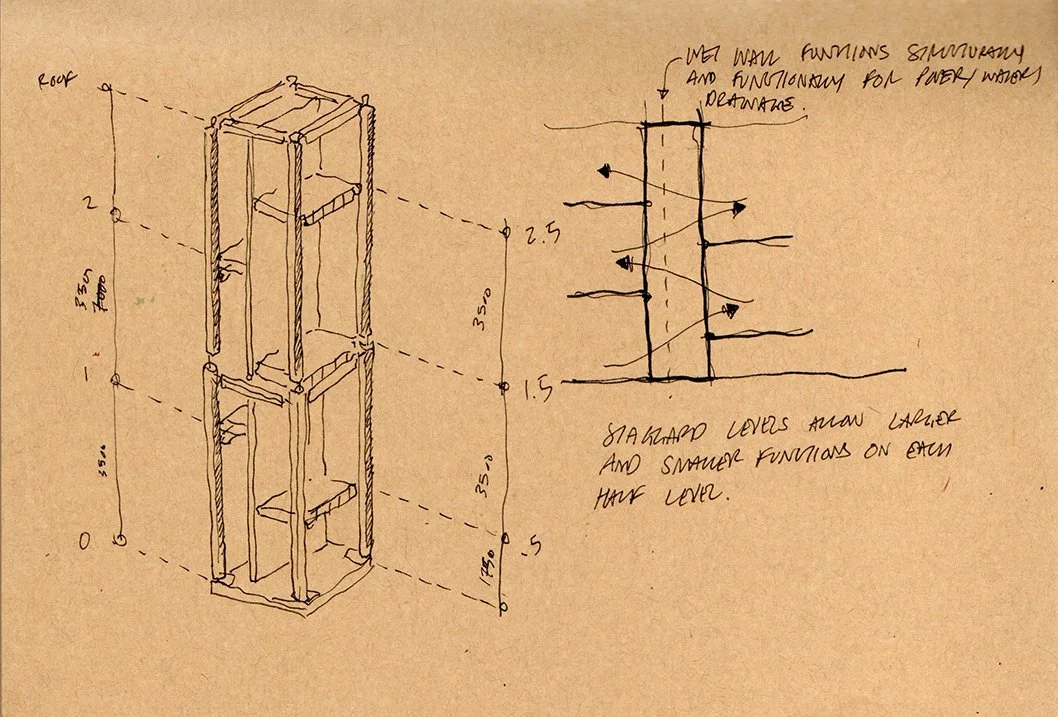 ROOF
2
3500
7000
1
3500
0
2.5
3500
1.5
3500
.5
1750
WET WALL FUNCTIONS STRUCTURALLY
AND FUNCTIONALLY FOR POWER/WATER/
DRAINAGE.
STAGGARD LEVELS ALLOW LARGER
AND SMALLER FUNCTIONS ON EACH
HALF LEVEL.